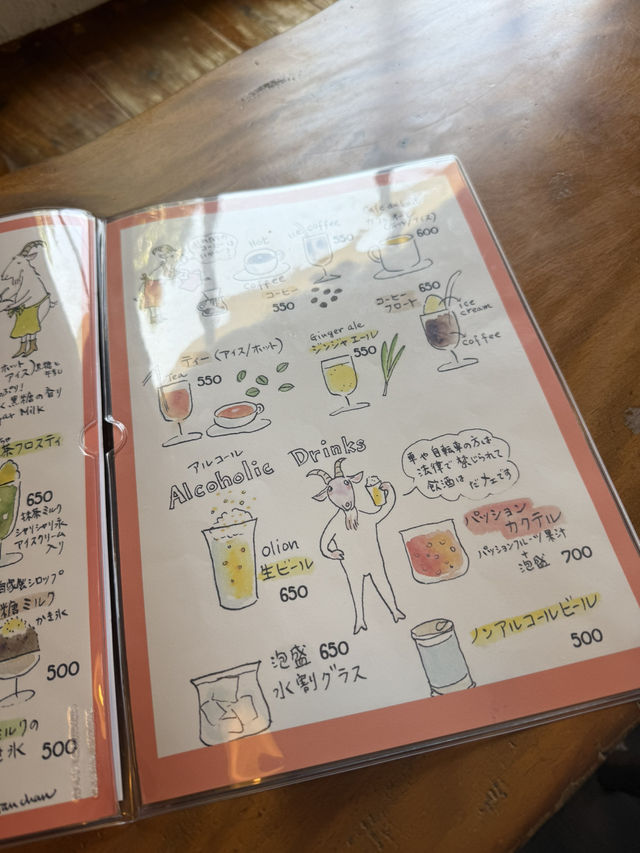 Hot
coffee
コーヒー
550
ice coffee
550
600
コーヒー
フロート
650
ice
cream
coffee
ティー(アイス/ホット)
Tea
550
Ginger ale
ジンジャエール
550
アルコール
Alcoholic Drinks
車や自転車の方は
法律で禁じられて
飲酒は だメェです
olion
生ビール
650
パッション
カクテル
パッションフルーツ果汁
+
泡盛 700
泡盛 650
水割グラス
ノンアルコールビール
500
茶フロスティ
650
抹茶ミルク
シャリシャリ氷
アイスクリーム
入り
糖ミルク
かき氷
500
ミルクの
500